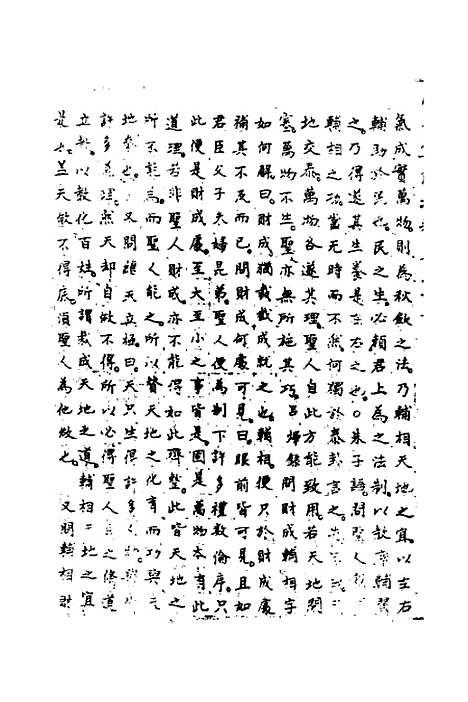 氣成實萬物則為秋斂之法乃輔相天地之宜以左右
輔助於民也民之生必賴君上為之法制以教率輔翼
之乃得遂其生養是左右之也○朱子語問
輔相之功當无時而不然何獨於泰卦言之
地交泰萬物各遂其理聖人自此方能致用若天地閉
塞萬物不生聖亦無所施其巧呂煇錄問財成輔相字
如何解曰財成猶裁截成就之也輔相便只於財成處
補其不及而已問財成何處可見曰眼前皆可見且如
君臣父子夫婦兄弟聖人便為制下許多禮數倫序只
此便是財成處至大至小之事皆是固是萬物本有此
道理若非聖人財成亦不能得如此齊整此皆天地之
所不能為而聖人能之所以贊天地之化育而功與
地參也又問輔天立極曰天只生得許多人
許多道理然天却自做不得所以必得聖人之脩道
立教以教化百姓所謂裁成天地之道輔相地之宜
是也蓋天做不得底須聖人為他做也又問輔相財